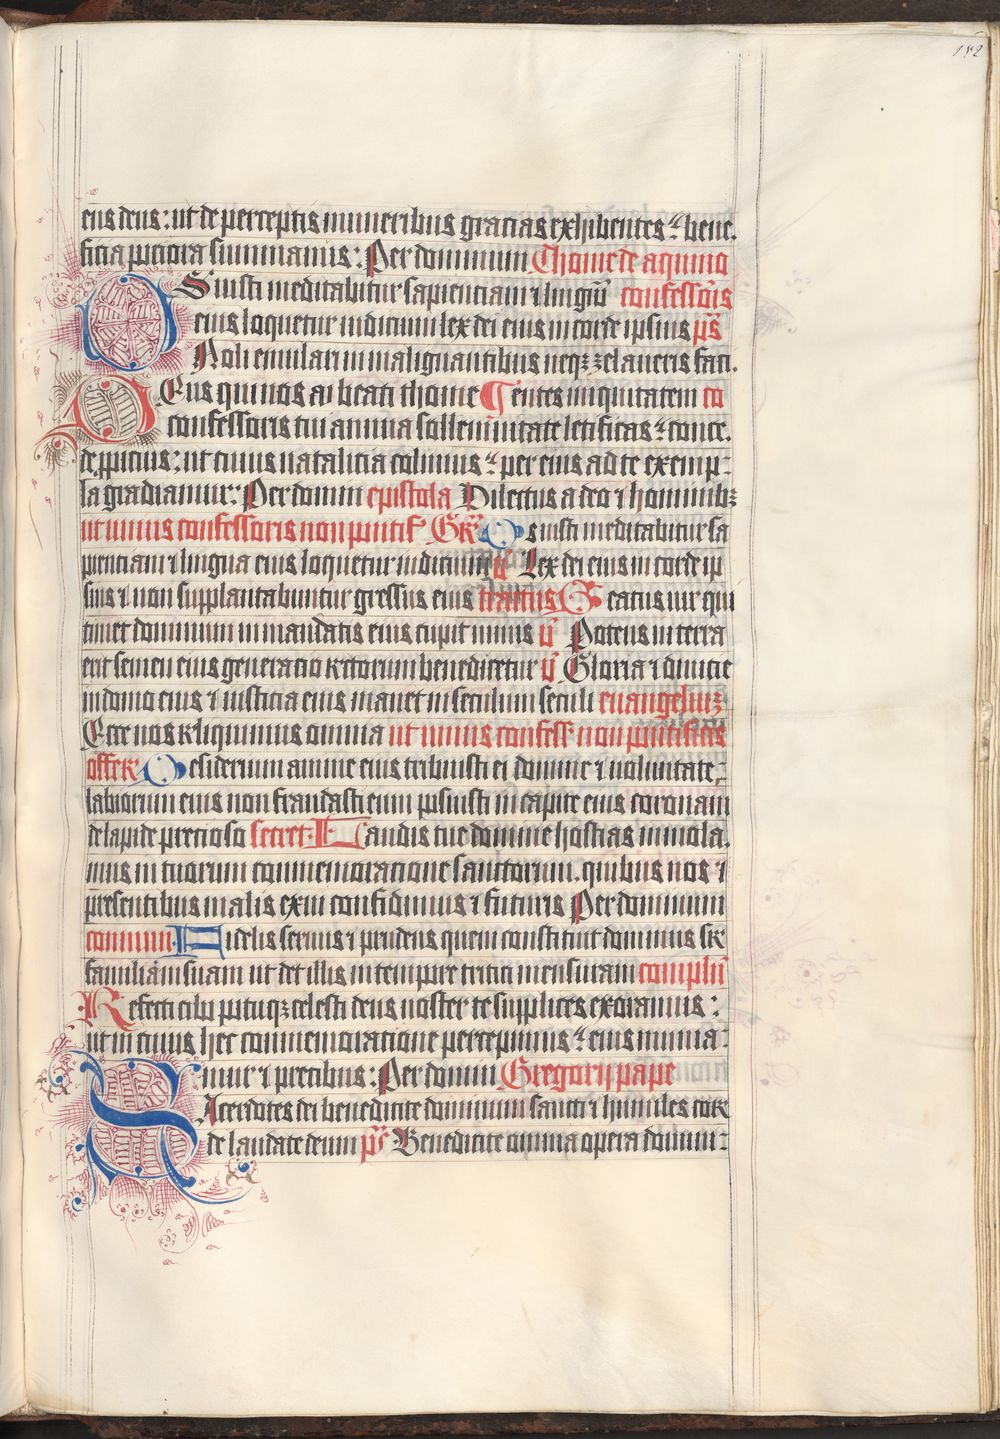 152
eus deus: ut de perceptis muneribus gracias exhibentes bene
ficia pociora summamus: Per dominum Thome de aquino
OS iusti meditabitur sapienciam ⁊ lingū confessoris
eius loquetur iudicium lex dei eius in corde ipsius p̄s
Noli emulari in malignantibus neqꝫ zelaueris faci
DEus qui nos ai beati thome entes iniquitatem co
confessoris tui annua sollennitate letificas conce
de ꝓpicius: ut cuius natalicia colimus per eius ad te exemp
la gradiamur: Per domin epistola Dilectus a deo ⁊ hominibꝫ
ut unius confessoris non pontif Gr Os iusti meditabitur sa
pienciam ⁊ lingua eius loquetur iudicium v̄ Lex dei eius in corde ip
sius ⁊ non supplantabuntur gressus eius tractus Beatus uir qui
timet dominum in mandatis eius cupit nimis v̄ Potens in terra
erit semen eius generatio rectorum benedicetur v̄ Gloria ⁊ diuicie
in domo eius ⁊ iusticia eius manet in seculum seculi euangeliuꝫ
Ecce nos reliquimus omnia ut unius confess non pontificis
offer Desiderium anime eius tribuisti ei domine ⁊ uoluntate
labiorum eius non fraudasti eum posuisti in capite eius coronam
de lapide precioso secret Laudis tue domine hostias immola
mus in tuorum commemoratione sanctorum quibus nos ⁊
presentibus malis exui confidimus ⁊ futuris Per dominum
commun Fidelis seruus ⁊ prudens quem constituit dominus sr
familiam suam ut det illis in tempore tritici mensuram complū
Refecti cibo potuqꝫ celesti deus noster te supplices exoramus:
ut in cuius hec commemoratione percepimus eius munia
mur ⁊ precibus: Per domin Gregorii pape
SAcerdotes dei benedicite dominum sancti ⁊ humiles cor
de laudate deum ps̄ Benedicite omnia opera domini